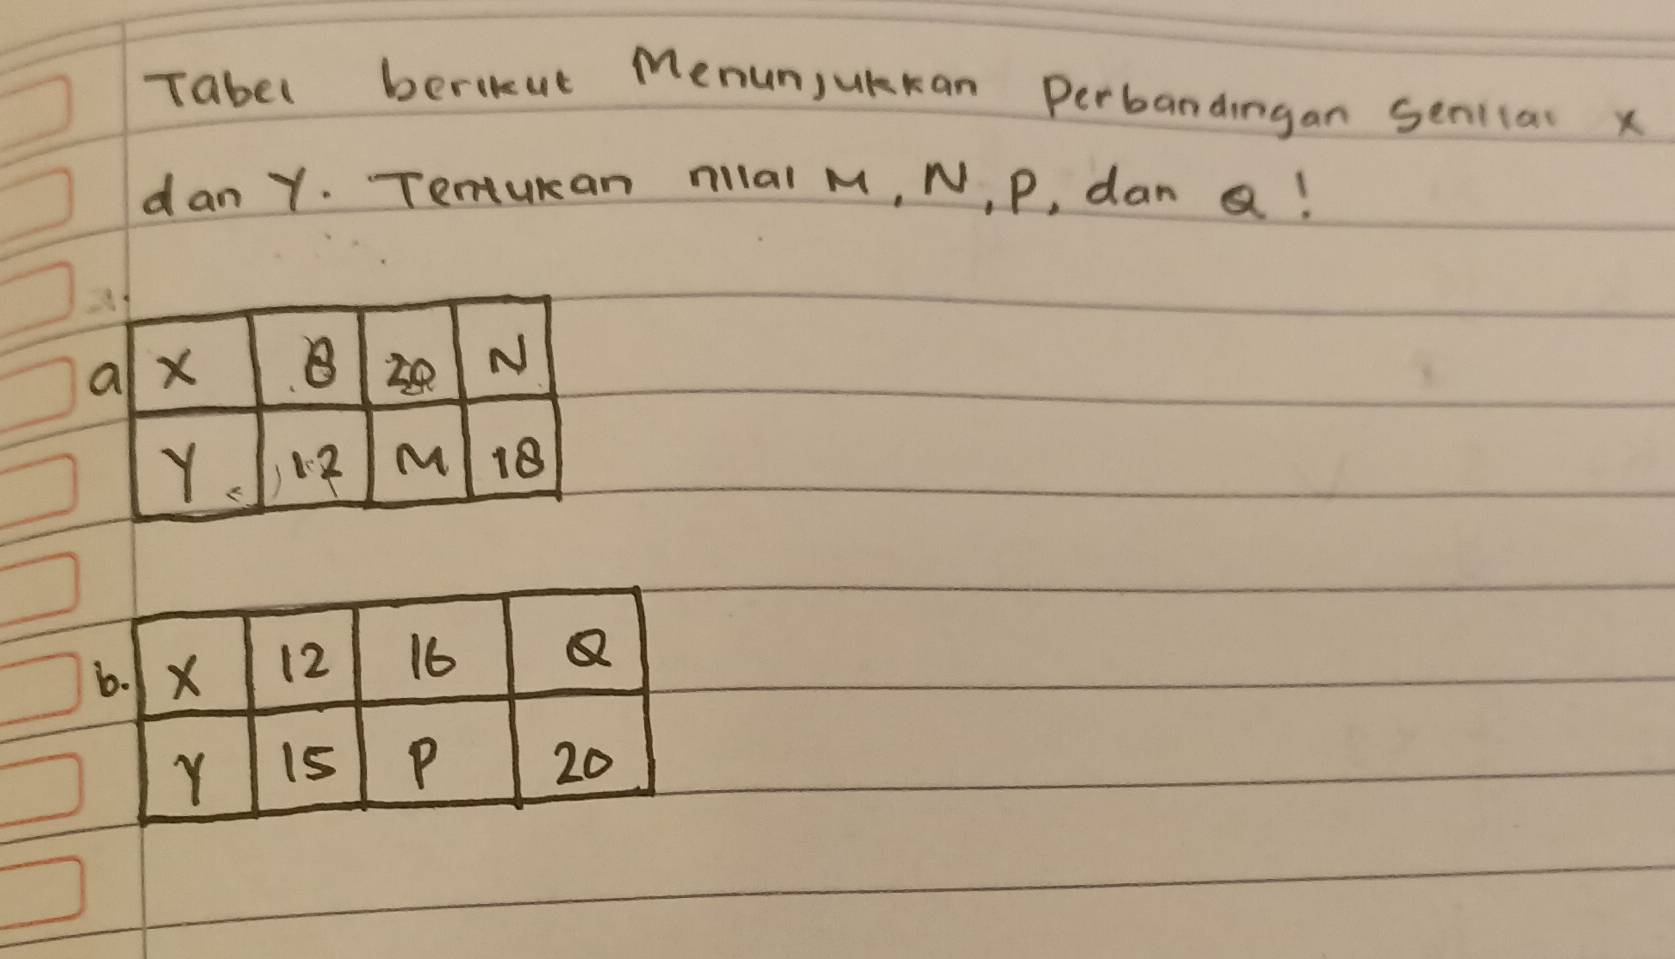 Tabel berikut Menunjukkan Perbandingan Senilai x
dan Y. Tentukan nilai M, N, P, dan Q!
a X 8 20 N
Y 12 M 18
b. X 12 16 Q
Y 15 P 20